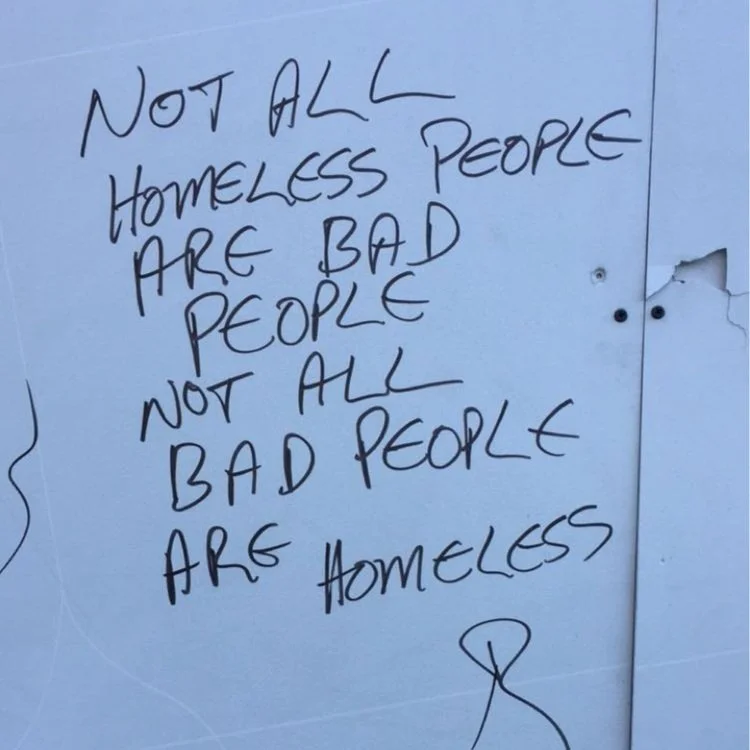 NOT ALL
HOMELESS PEOPLE
ARE BAD
PEOPLE
NOT ALL
BAD PEOPLE
ARE HOMELESS